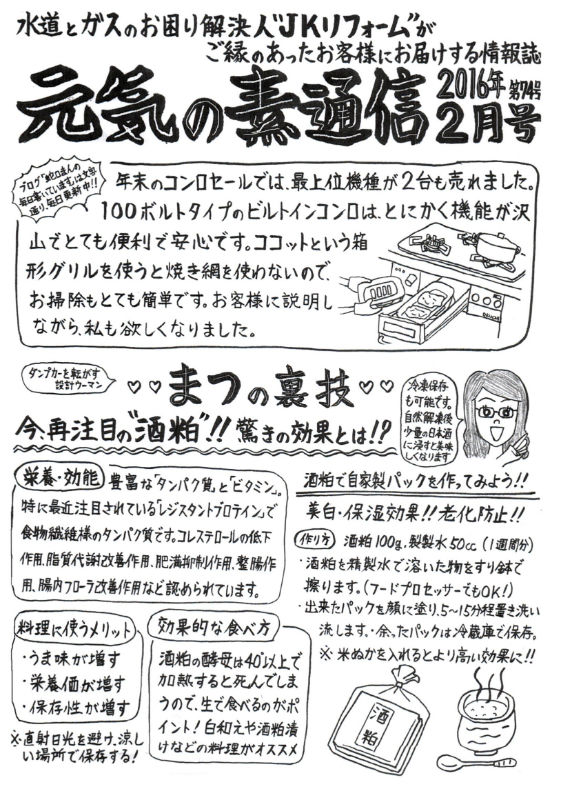 水道とガスのお困り解決人"JKリフォーム"が
ご縁のあったお客様にお届けする情報誌
元気の素通信
2016年 第74号
2月号
ブログ「蛇口まんの
毎日書いています」は文字
通り、毎日更新中!!
年末のコンロセールでは、最上位機種が2台も売れました。
100ボルトタイプのビルトインコンロは、とにかく機能が沢
山でとても便利で安心です。ココットという箱
形グリルを使うと焼き網を使わないので、
お掃除もとても簡単です。お客様に説明し
ながら、私も欲しくなりました。
ダンプカーを転がす
設計ウーマン
♡♡まつの裏技♡♡
今、再注目の"酒粕"!! 驚きの効果とは!?
冷凍保存
も可能です。
自然解凍後
少量の日本酒
に浸すと美味
しくなります
栄養・効能
豊富な「タンパク質」と「ビタミン」。
特に最近注目されている「レジスタントプロテイン」で
食物繊維様のタンパク質です。コレステロールの低下
作用、脂質代謝改善作用、肥満抑制作用、整腸作
用、腸内フローラ改善作用など認められています。
料理に使うメリット
・うま味が増す
・栄養価が増す
・保存性が増す
※直射日光を避け、涼し
い場所で保存する!
効果的な食べ方
酒粕の酵母は40°以上で
加熱すると死んでしま
うので、生で食べるのがポ
イント!白和えや酒粕漬
けなどの料理がオススメ
酒粕で自家製パックを作ってみよう!!
美白・保湿効果!!老化防止!!
作り方 酒粕100g、製製水50cc(1週間分)
・酒粕を精製水で溶いた物をすり鉢で
擦ります。(フードプロセッサーでもOK!)
・出来たパックを顔に塗り、5~15分程置き洗い
流します。・余ったパックは冷蔵庫で保存。
※米ぬかを入れるとより高い効果に!!
酒粕